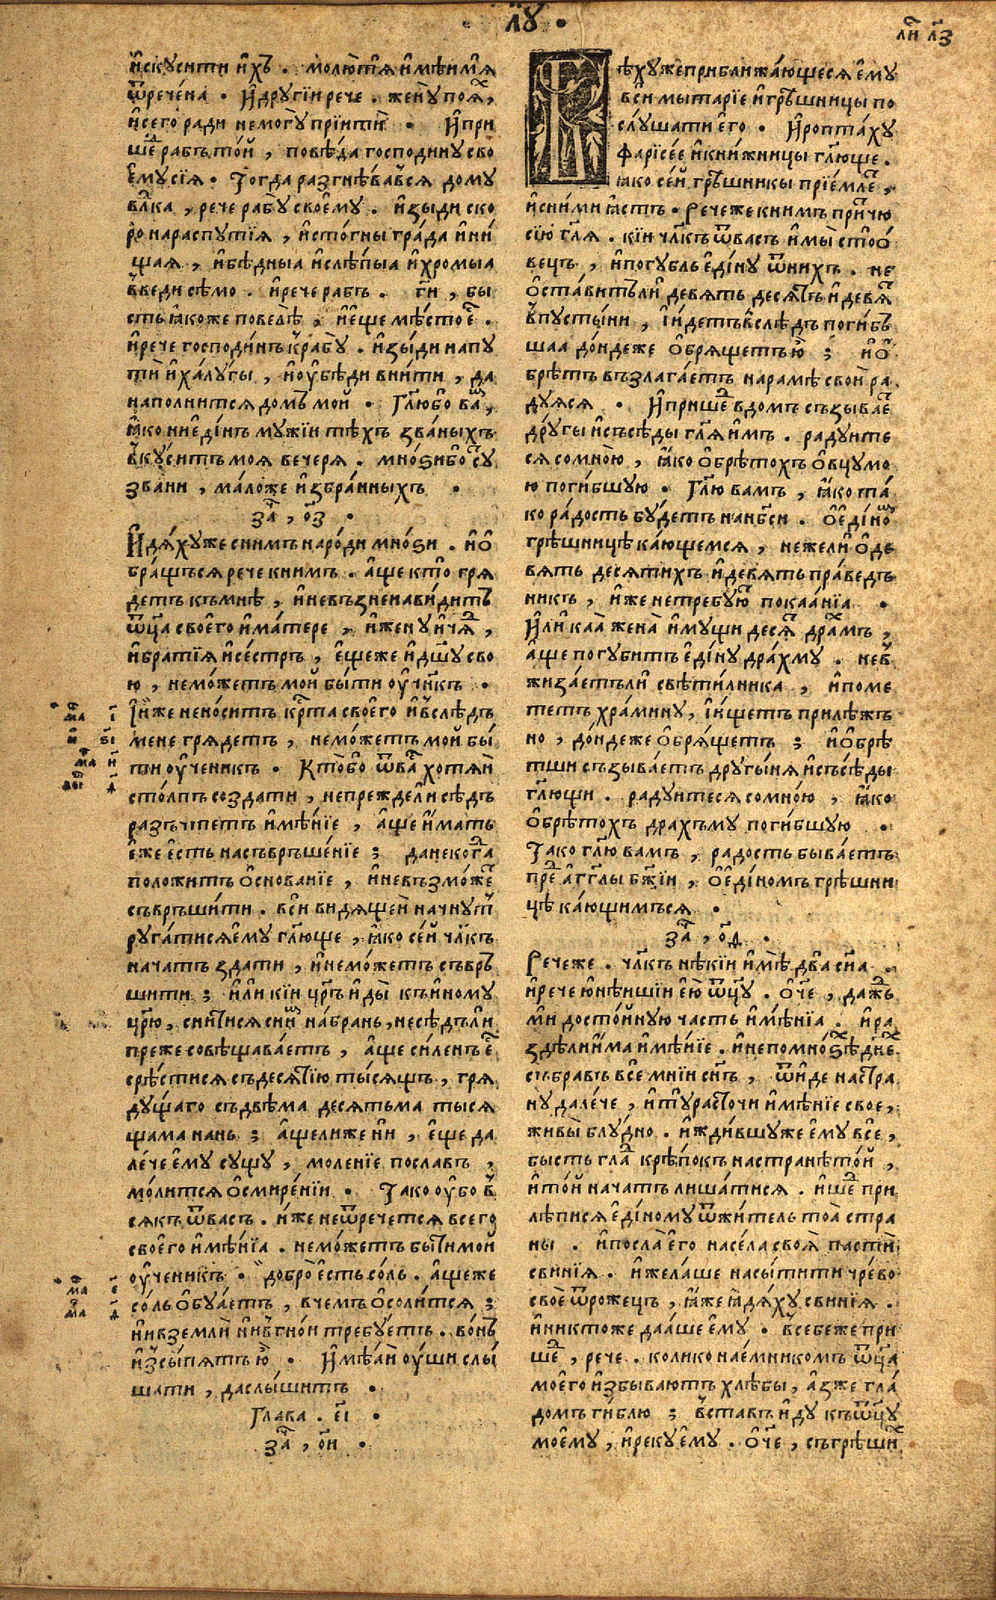 · лꙋ ·
лⷭ҇и л҃з
и҆скꙋсити и҆хъ . молютⷭ҇ѧ и҆мѣи мⷨ҇ѧ
ѿреченна · И҆ дрꙋгіи рече . женꙋ поѧⷯ ,
и҆ сего ради немогꙋ прїити · И҆ при
шеⷣ рабъ той , повѣда господинꙋ сво
е҆мꙋ сїѧ · Тогда разгнѣвавсѧ домꙋ
влⷣка , рече рабꙋ свое҆мꙋ . и҆зыди ско
ро на распꙋтїѧ , и҆ стогны града и҆ ни
щаѧ , и҆ бѣдныа и҆ слѣпыа и҆ хромыа
в̾веди сѣмо . и҆ рече рабъ . гⷭ҇и , бы
сть ꙗ҆коже повелѣ , и҆ е҆ще мѣсто еⷭ҇ .
и҆ рече господинъ к̾ рабꙋ . и҆зыди на пꙋ
ти и҆ халꙋгы , и҆ ᲂу҆бѣди внити , да
наполнитсѧ домъ мой · Гл҃ю бо ваⷨ ,
ꙗ҆ко ни е҆динъ мꙋжїи тѣхъ званыхъ
в̾кꙋситъ моѧ вечерѧ . мноѕи бо сꙋⷮ
звани , мало же и҆збранныхъ ·
заⷱ҇ , о҃з ·
И҆дѧхꙋ же с нимъ народи мноѕи . и҆ о҆
бращьсѧ рече к нимъ . а҆ще кто грѧ
детъ къ мнѣ , и҆ невъзненавидитъ
ѿц҃а свое҆го и҆ матере , и҆ женꙋ и҆ чѧⷣ ,
и҆ братїѧ и҆ сестръ , е҆щеже и҆ дш҃ꙋ сво
ю , неможетъ мой быти ᲂу҆чн҃къ ·
И҆ иже неноситъ крⷭ҇та свое҆го и҆ в̾слѣдъ
мене грѧдетъ , неможетъ мой бы
ти ᲂу҆ченикъ · Кто бо ѿ ваⷭ҇ хотѧй
столпъ создати , не преждели сѣдъ
разъчтетъ и҆мѣнїе , а҆ще и҆мать
е҆же е҆сть на съвръшенїе ; да некогⷣа
положитъ ѡ҆снованїе , и҆ невъзможеⷮ
съвръшити . вси видѧщеи начнꙋтⷮ
рꙋгатисѧ е҆мꙋ гл҃юще , ꙗ҆ко сей чл҃къ
начатъ здати , и҆ неможетъ съвръ
шити ; и҆ли кїи цр҃ь и҆ды къ и҆номꙋ
цр҃ю , снитисѧ с ниⷨ на брань , не сѣдъли
преже совѣщаваетъ , а҆ще силенъ еⷭ҇
срѣстисѧ съ десѧтїю тысѧщь , грѧ
дꙋщаго съ двѣма десѧтьма тысѧ
щама нань ; а҆щелиже ни , е҆ще да
лече е҆мꙋ сꙋщꙋ , моленїе пославъ ,
молитсѧ ѡ҆ смиренїи · Тако ᲂу҆бо в̾
сѧкъ ѿ васъ . и҆же неѿречетсѧ всего
свое҆го и҆мѣнїа . неможетъ быти мой
ᲂу҆ченикъ · добро е҆сть соль . а҆щеже
соль ѡ҆бꙋаетъ , в чемъ ѡ҆солитсѧ ;
ни в земли ни в̾ гной требꙋетъ . вонъ
и҆зсыпѧтъ ю҆ · И҆мѣай ᲂу҆ши слы
шати , да слышитъ ·
Глава . е҃і ·
заⷱ҇ , о҃и ·
Бѣхꙋ же приближающесѧ е҆мꙋ
вси мытарїе и҆ грѣшницы по
слꙋшати е҆го · И҆ роптахꙋ
фарїсее и҆ книжницы гл҃юще .
ꙗ҆ко сей грѣшникы прїемлеⷮ ,
и҆ с ними ꙗ҆стъ · Рече же к нимъ притчю
сїю гл҃ѧ . кїи чл҃къ ѿ васъ и҆мы сто ѡ҆
вець , и҆ погꙋбль е҆динꙋ ѿ нихъ . не
ѡ҆ставитъли девѧть десѧтъ и҆ девѧⷮ
в̾ пꙋстыни , і҆ идетъ в̾слѣдъ погибъ
шаа дондеже ѡ҆брѧщетъ ю҆ ; и҆ ѡ҆
брѣтъ възлагаетъ на рамѣ свои ра
дꙋѧсѧ · И҆ пришеⷣ в домъ съзываеⷮ
дрꙋгы и҆ съсѣды гл҃ѧ и҆мъ . радꙋите
сѧ со мною , ꙗ҆ко ѡ҆брѣтохъ ѡ҆вцꙋ мо
ю погибшꙋю · Гл҃ю вамъ , ꙗ҆ко та
ко радость бꙋдетъ на нб҃си . ѡ҆ е҆диноⷨ
грѣшницѣ кающемсѧ , нежели ѡ҆ де
вѧть десѧтихъ и҆ девѧть праведь
никъ , и҆же не требꙋюⷮ покаанїа ·
И҆ли каа жена и҆мꙋщи десѧⷮ драⷯмъ ,
а҆ще погꙋбитъ е҆динꙋ драхмꙋ . не в̾
жизаетъли свѣтилника , и҆ поме
тетъ храминꙋ , і҆ ищетъ прилѣжь
но , дондеже ѡ҆брѧщетъ ; и҆ ѡ҆брѣ
тши съзываетъ дрꙋгынѧ и҆ съсѣды
гл҃ющи . радꙋитесѧ со мною , ꙗ҆ко
ѡ҆брѣтохъ драхъмꙋ погибшꙋю ·
Тако гл҃ю вамъ , радость бываетъ
преⷣ а҆гг҃лы бж҃їи , ѡ҆ е҆диномъ грѣшни
цѣ кающимъсѧ ·
заⷱ҇ , о҃д ·
Рече же . чл҃къ нѣкїи и҆мѣ два сн҃а .
и҆ рече ю҆нѣишїи е҆ю ѿц҃ꙋ . ѻ҆ч҃е , даждь
ми достойнꙋю часть и҆мѣнїа . и҆ ра
здѣли и҆ма и҆мѣнїе . и҆ не по мноѕѣⷯ днеⷯ
събравъ все мнїи сн҃ъ , ѿиде на стра
нꙋ далече , и҆ тꙋ расточи и҆мѣнїе свое ,
живы блꙋдно . и҆ждившꙋже е҆мꙋ все ,
бысть глаⷣ крѣпокъ на странѣ той ,
и҆ той начатъ лишатисѧ . и҆ шеⷣ при
лѣписѧ е҆диномꙋ ѿ жительтоа стра
ны . и҆ посла е҆го на села своѧ пасти
свинїѧ . и҆ желаше насытити чрево
свое ѿ рожець , ꙗ҆же ꙗ҆дѧхꙋ свинїѧ .
и҆ никтоже дааше е҆мꙋ · в̾ себеже при
шеⷣ , рече . колико наемникомъ ѿц҃а
мое҆го и҆збываютъ хлѣбы , а҆зже гла
домъ гиблю ; в̾ставъ идꙋ къ ѿц҃ꙋ
мое҆мꙋ , и҆ рекꙋ е҆мꙋ . ѻ҆ч҃е , съгрѣшиⷯ